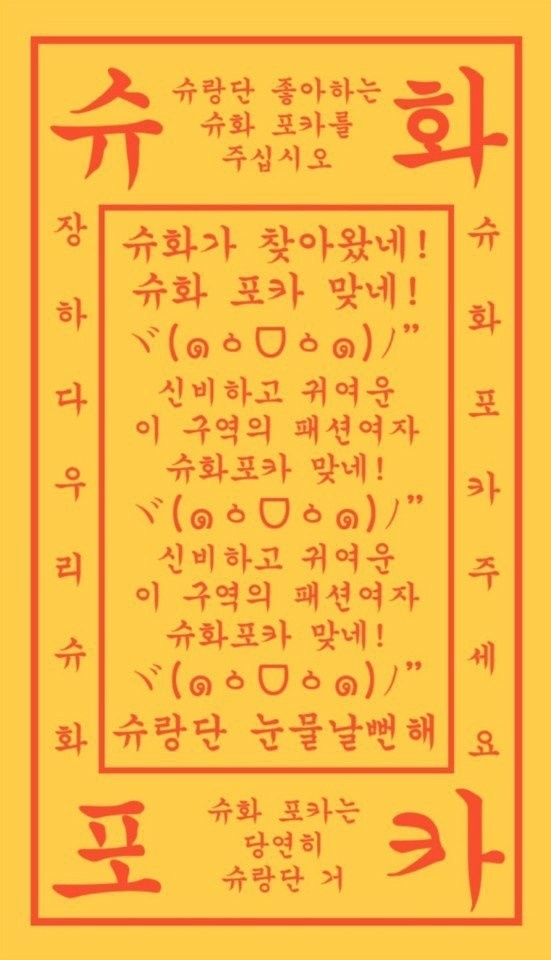 슈
슈랑단 좋아하는
슈화 포카를
주십시오
화
장하다우리슈화
슈화가 찾아왔네!
슈화 포카 맞네!
ヾ(๑ㆁᗜㆁ๑)ﾉ”
신비하고 귀여운
이 구역의 패션여자
슈화포카 맞네!
ヾ(๑ㆁᗜㆁ๑)ﾉ”
신비하고 귀여운
이 구역의 패션여자
슈화포카 맞네!
ヾ(๑ㆁᗜㆁ๑)ﾉ”
슈랑단 눈물날뻔해
슈화포카주세요
포
슈화 포카는
당연히
슈랑단 거
카